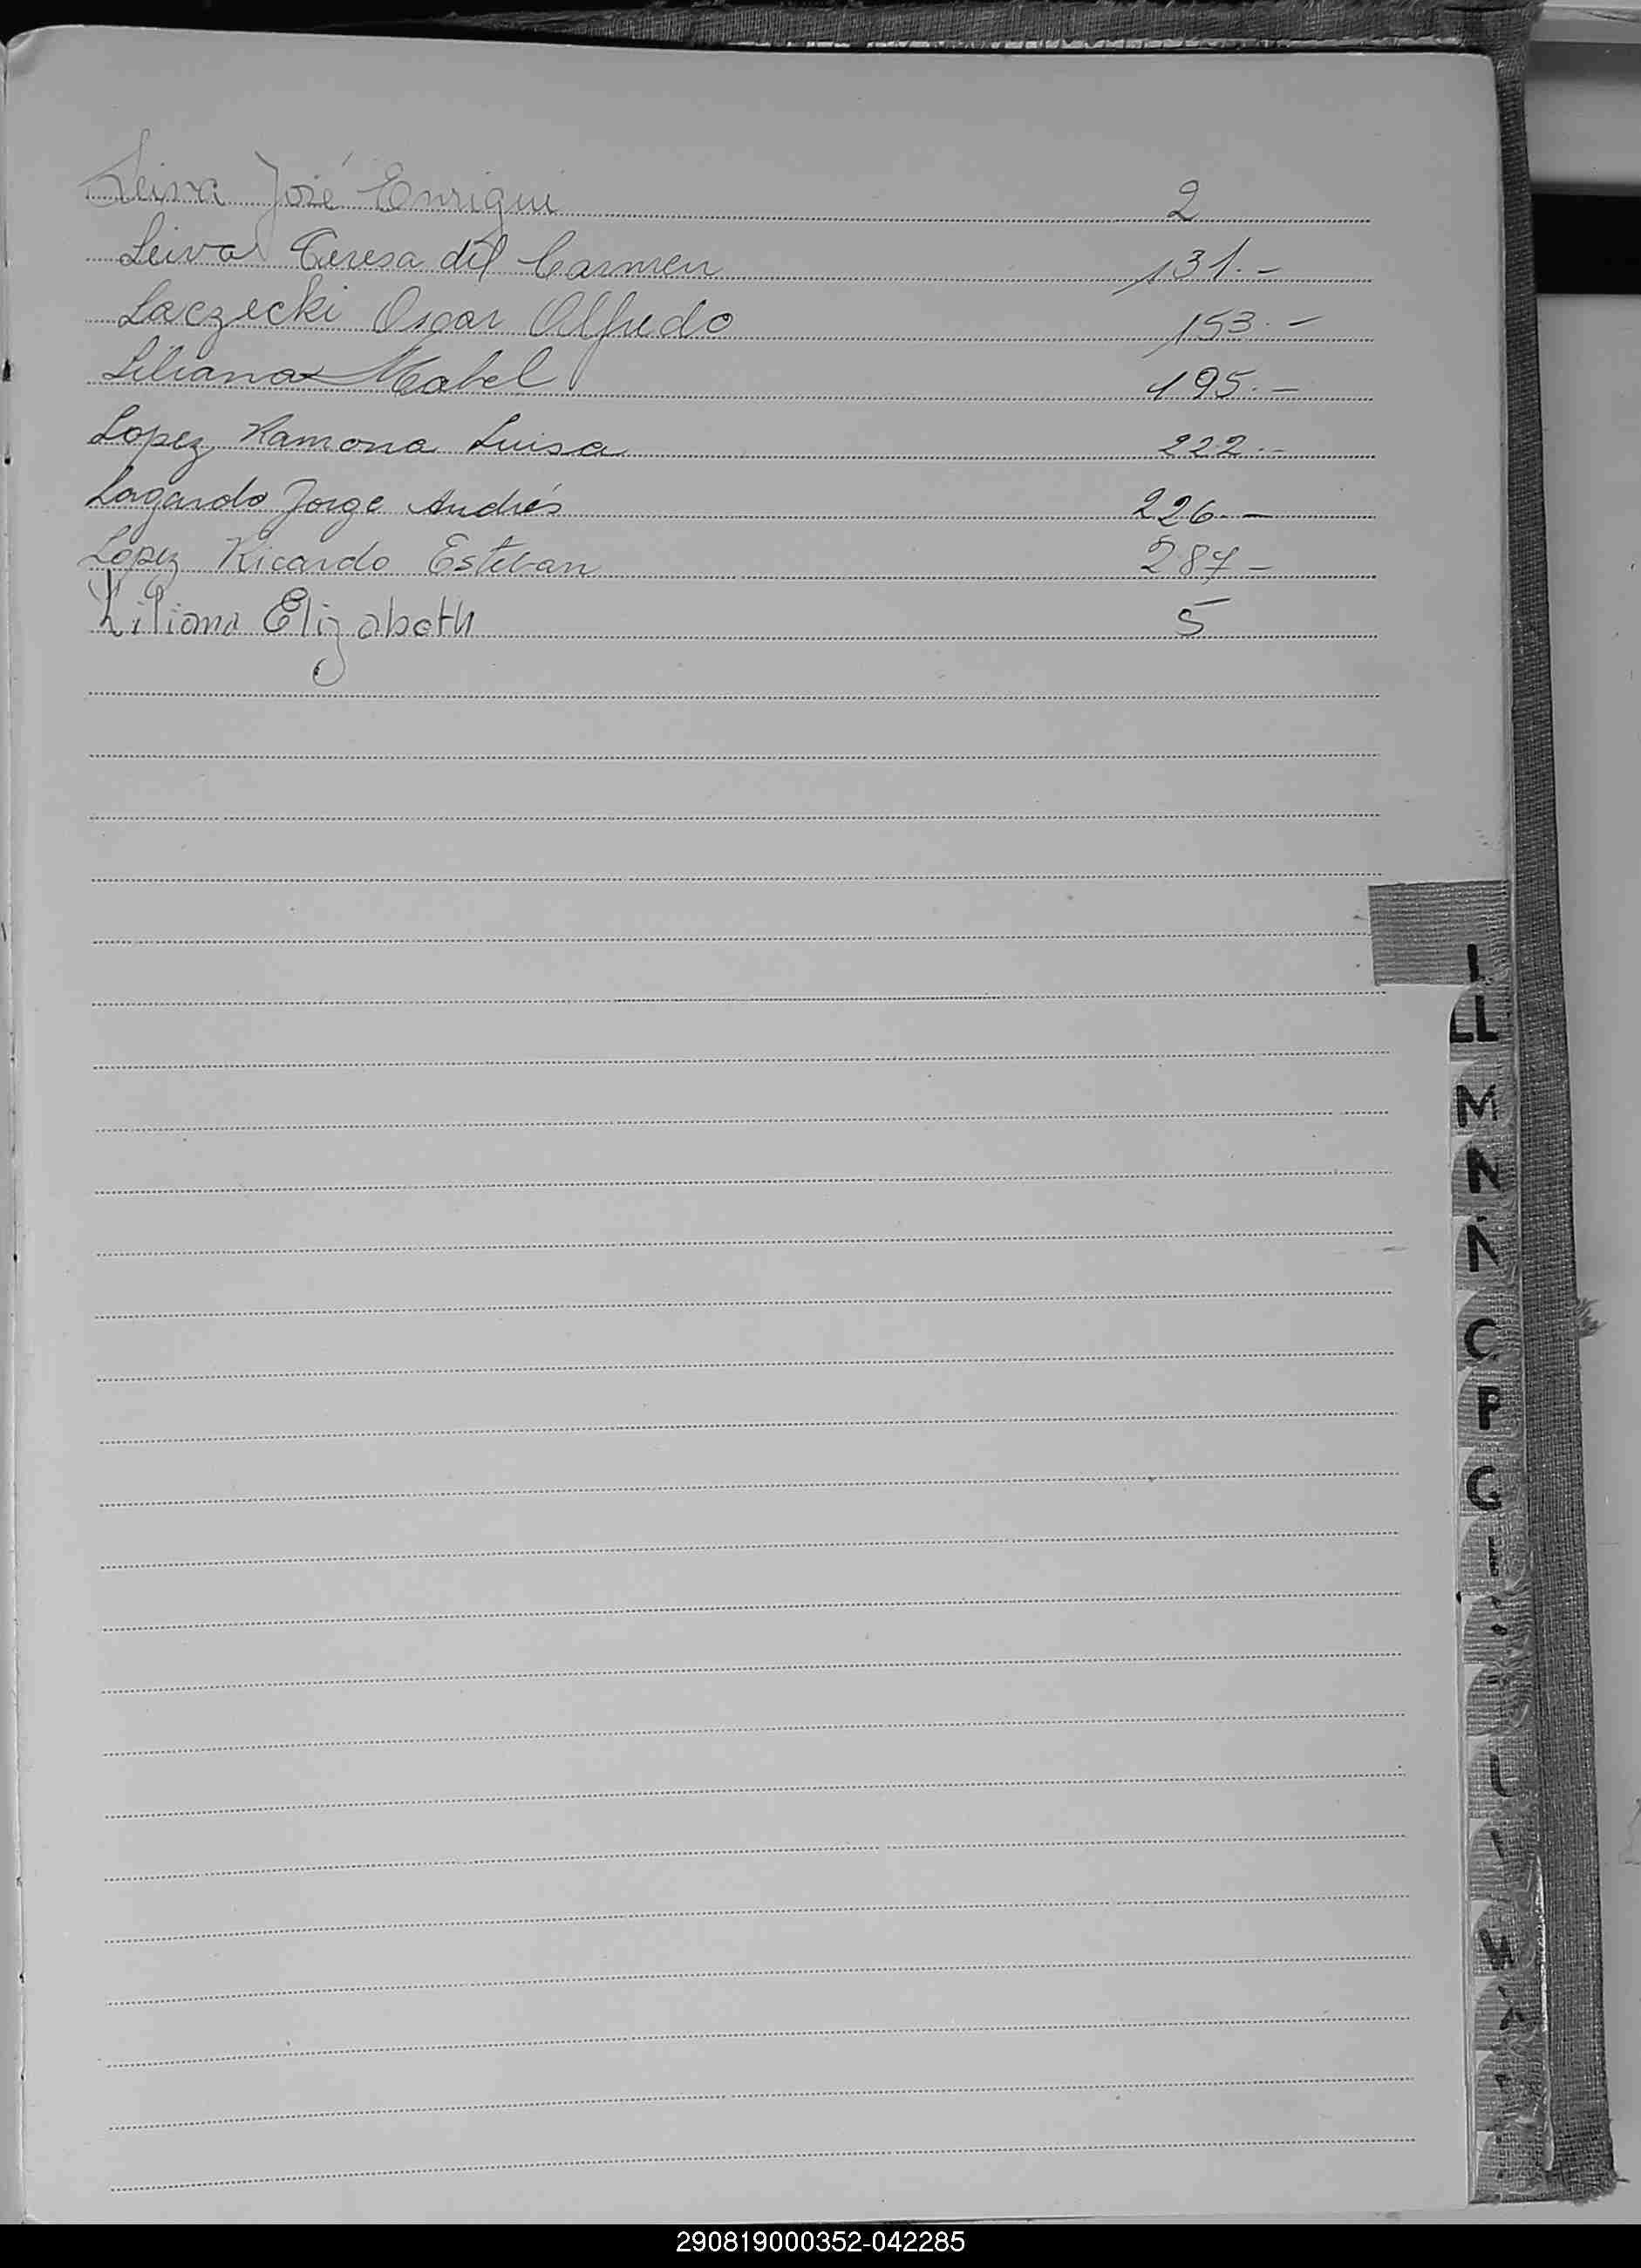 Leiva José Enrique 2
Leiva Teresa del Carmen 131.-
Laczecki Oscar Alfredo 153.-
Liliana Mabel 195.-
Lopez Ramona Luisa 222.-
Lagardo Jorge Andrés 226.-
Lopez Ricardo Esteban 287-
Liliana Elizabeth 5
L
LL
M
N
Ñ
P
290819000352-042285